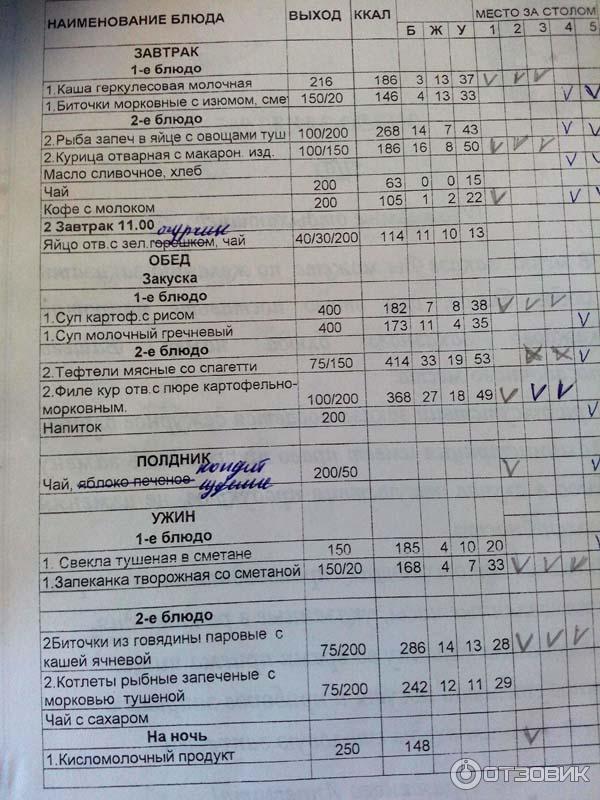 НАИМЕНОВАНИЕ БЛЮДА ВЫХОД ККАЛ МЕСТО ЗА СТОЛОМ
Б Ж У 1 2 3 4 5
ЗАВТРАК
1-е блюдо
1.Каша геркулесовая молочная 216 186 3 13 37
1.Биточки морковные с изюмом, сме 150/20 146 4 13 33
2-е блюдо
2.Рыба запеч в яйце с овощами туш 100/200 268 14 7 43
2.Курица отварная с макарон. изд. 100/150 186 16 8 50
Масло сливочное, хлеб
Чай 200 63 0 0 15
Кофе с молоком 200 105 1 2 22
2 Завтрак 11.00 огурчик
Яйцо отв.с зел.горошком, чай 40/30/200 114 11 10 13
ОБЕД
Закуска
1-е блюдо
1.Суп картоф.с рисом 400 182 7 8 38
1.Суп молочный гречневый 400 173 11 4 35
2-е блюдо
2.Тефтели мясные со спагетти 75/150 414 33 19 53
2.Филе кур отв.с пюре картофельно-
морковным. 100/200 368 27 18 49
Напиток 200
ПОЛДНИК
Чай, яблоко печеное 200/50
УЖИН
1-е блюдо
1. Свекла тушеная в сметане 150 185 4 10 20
1.Запеканка творожная со сметаной 150/20 168 4 7 33
2-е блюдо
2Биточки из говядины паровые с
кашей ячневой 75/200 286 14 13 28
2.Котлеты рыбные запеченые с
морковью тушеной 75/200 242 12 11 29
Чай с сахаром
На ночь
1.Кисломолочный продукт 250 148
ОТЗОВИК